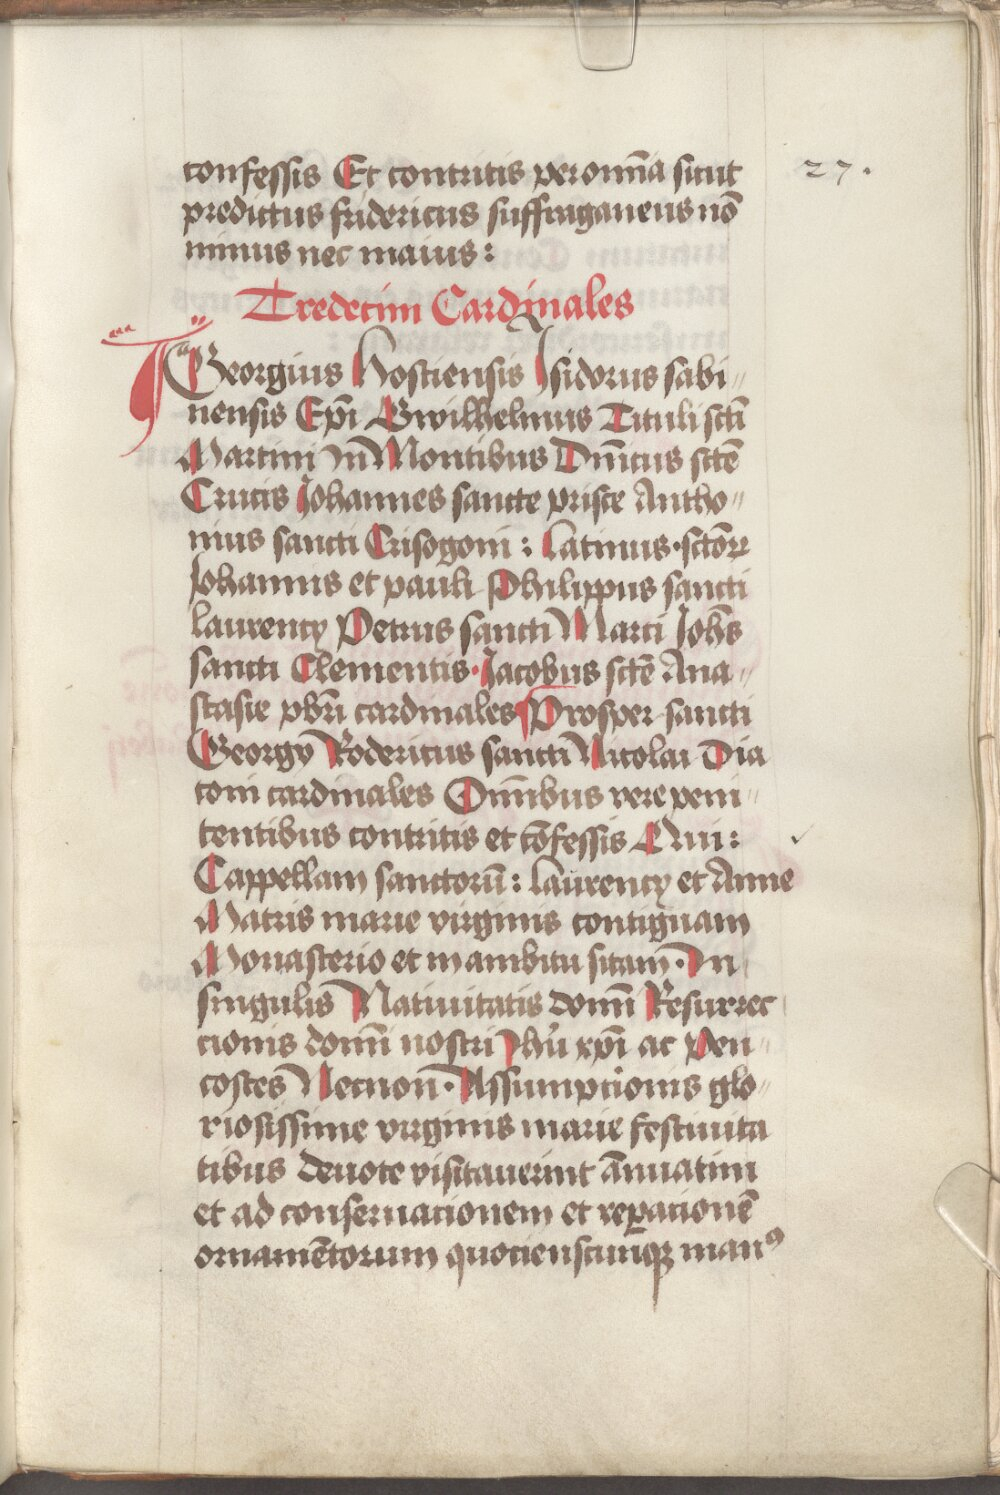 confessis Et contritis per omīa sicut
27.
predictus fridericus suffraganeus nō
minus nec maius:
Tredecim Cardinales
Georgius Hostiensis Isidorus sabi〃
nensis Ep̄i Gwilhelmus Tituli sc̄ti
Martini In Montibus Dn̄icus sctē
Crucis Johannes sancte prisce Antho〃
nius sancti Crisogoni: Latinus · sctōꝝ
Johannis et pauli Philippus sancti
laurencÿ Petrus sancti Marci Joh̄s
sancti Clementis · Jacobus sctē Ana〃
stasie pb̄ri cardinales Prosper sancti
Georgÿ Rodericus sancti Nicolai Dia
coni cardinales Om̄ibus vere peni〃
tentibus contritis et cōfessis Qui:
Cappellam sanctorū: laurencÿ et Anne
Matris marie virginis contiguam
Monasterio et in ambitu sitam · In
singulis Natiuitatis domī Resurrec
cionis domī nostri Jhū xp̄i ac Pen〃
costes Necnon · Assumpcionis glo〃
riosissime virginis marie festiuita
tibus deuote visitauerint annuatim
et ad conseruacionem et reꝑacionē
ornamētorum quocienscunqꝫ manꝰ